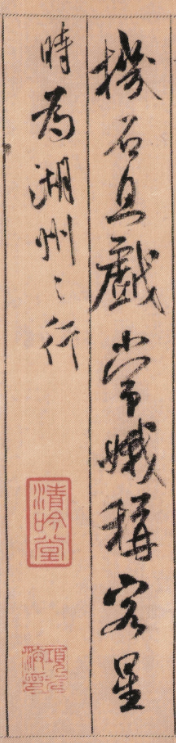 機石且戲常娥稱客星
時為湖州之行
清吟堂